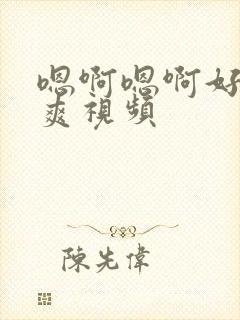 嗯啊嗯啊好
爽視頻
陳先偉